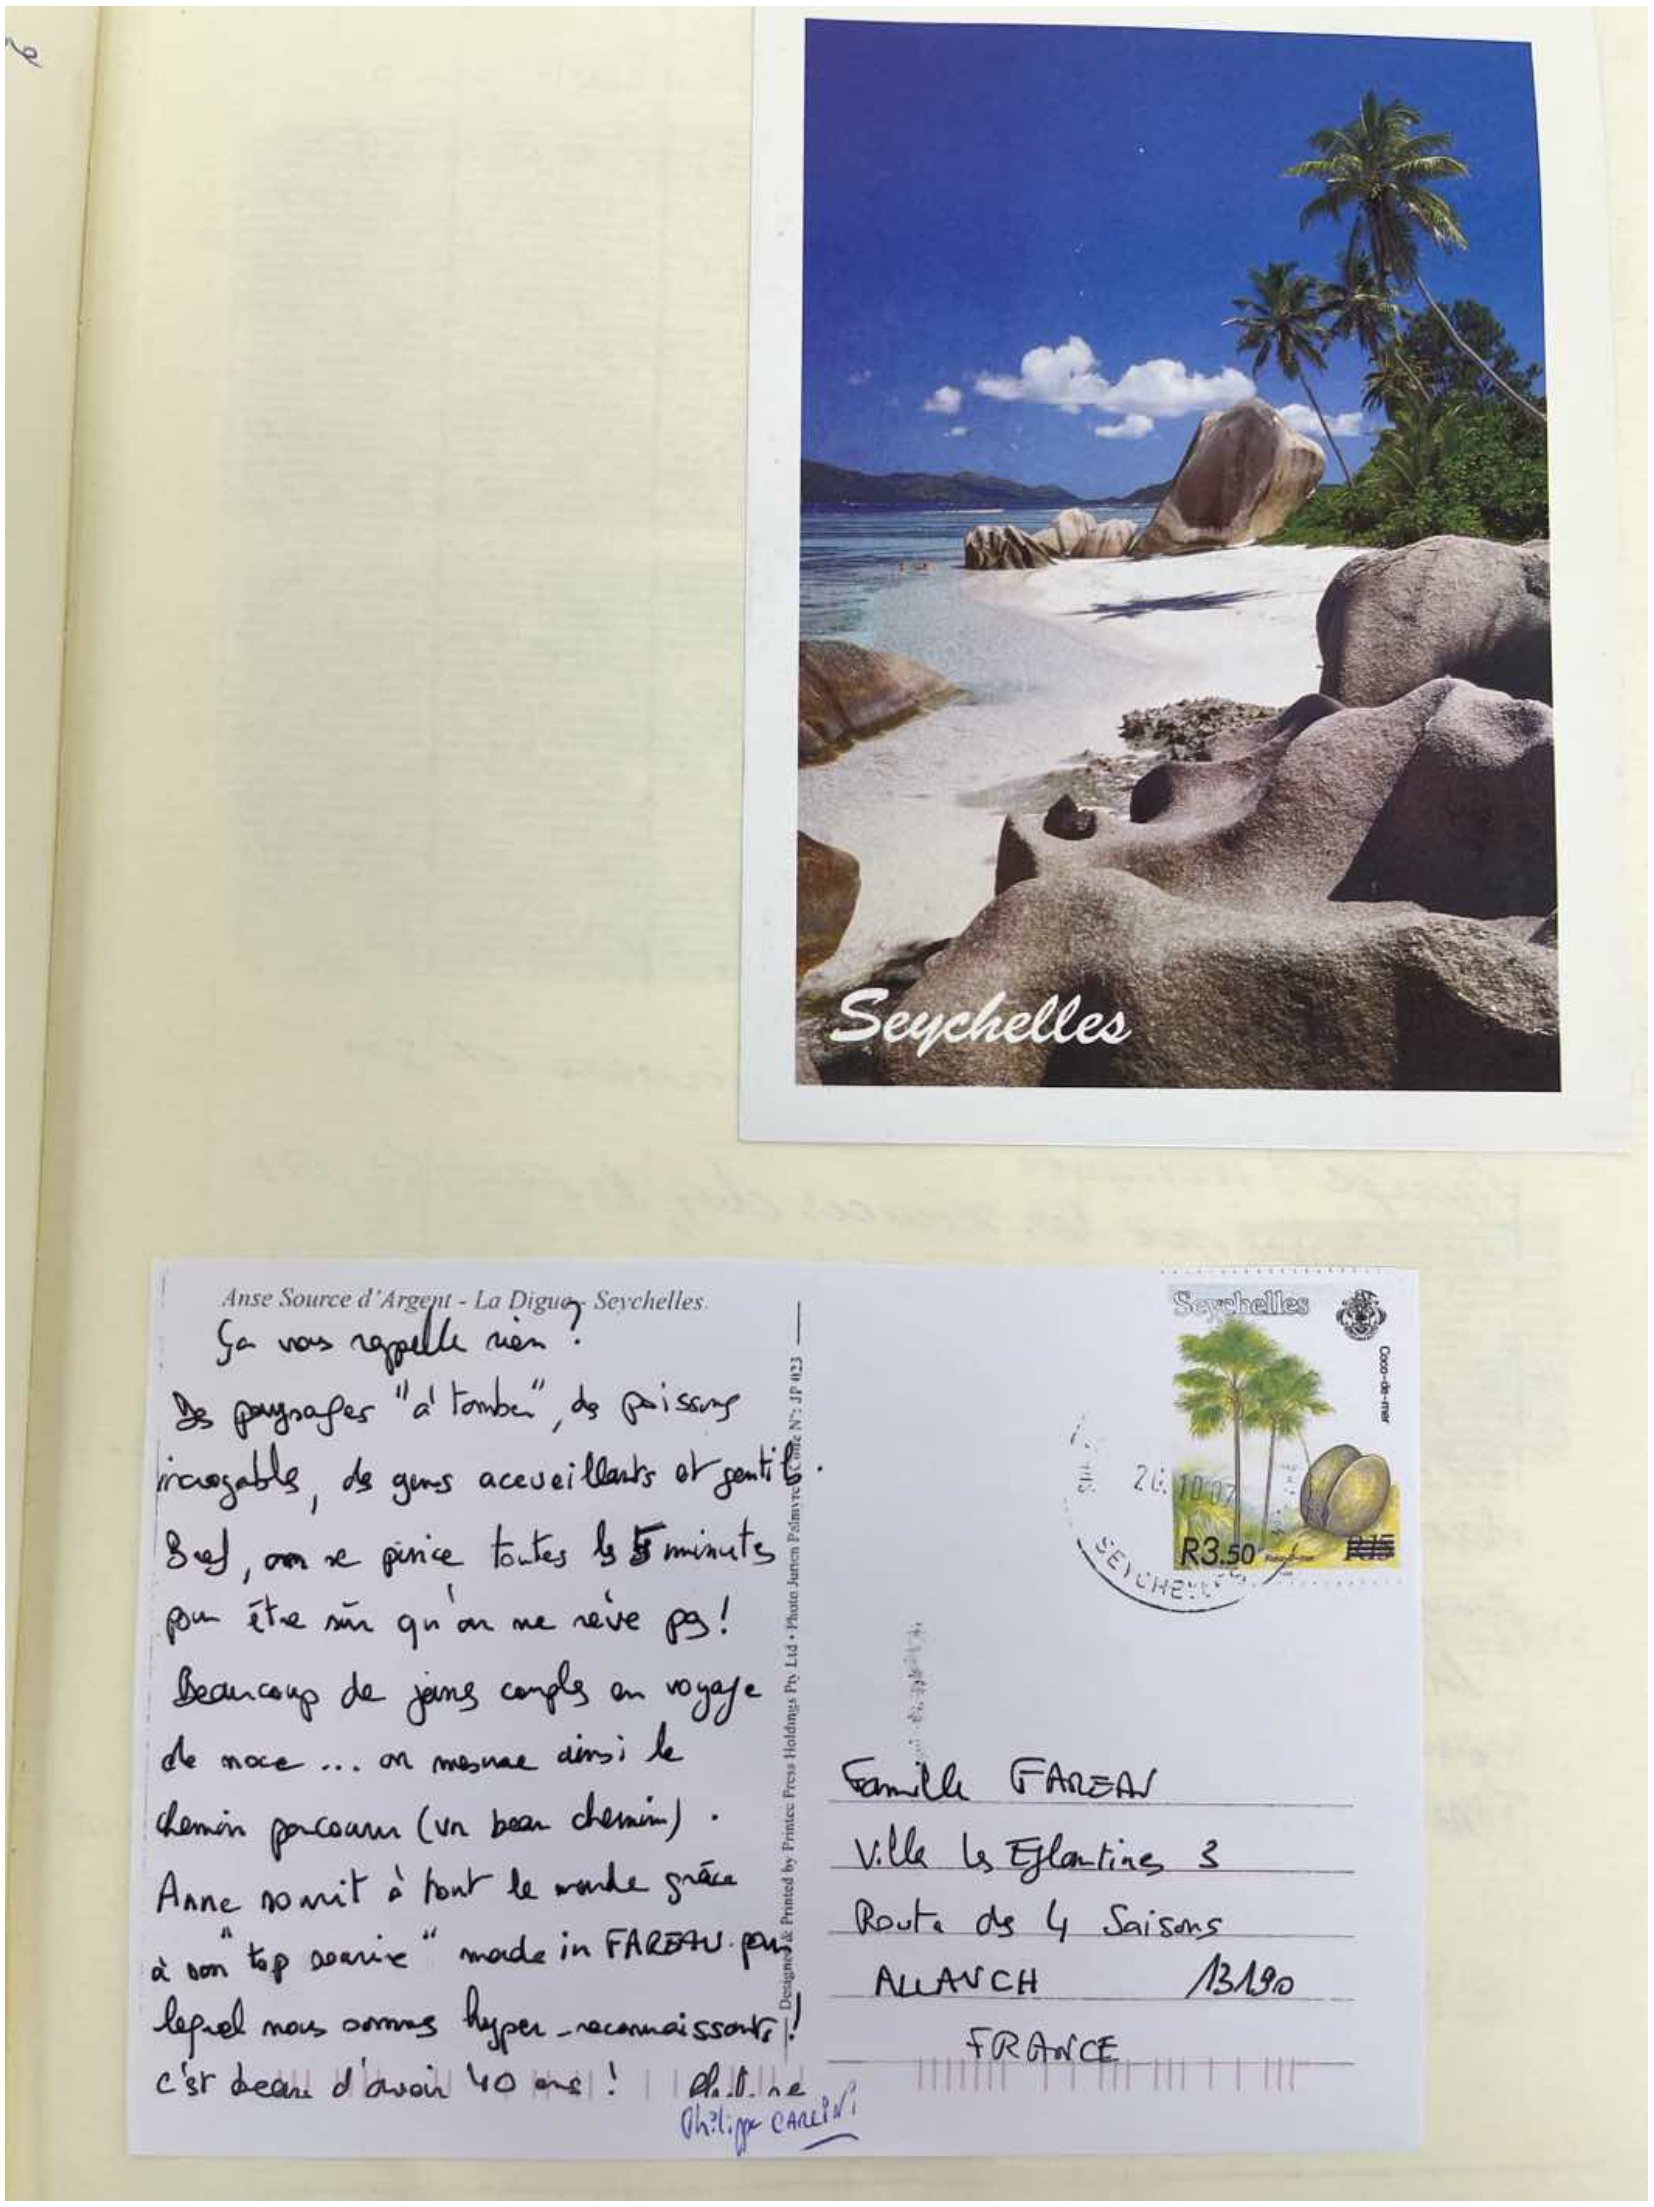 Seychelles
Anse Source d'Argent - La Digue - Seychelles
Ça vous rappelle rien ?
Des paysages "à tomber", des poissons
incroyables, des gens acceuillants et gentils.
Bref, on se pince toutes les 5 minutes
pour être sûr qu'on ne rêve pas !
Beaucoup de jeunes couples en voyage
de noce ... on mesure ainsi le
chemin parcouru (un beau chemin).
Anne sourit à tout le monde grâce
à son "top sourire" made in FAREAU pour
lequel nous sommes hyper-reconnaissants !
c'est beau d'avoir 40 ans !
Philippe CARLINI
Designed & Printed by Printec Press Holdings Pty Ltd • Photo Palmyre Code N°: JP 023
Seychelles
Coco-de-mer
10 07
SEYCHELLES
R3.50
R15
Famille FAREAU
Villa les Eglantines 3
Route des 4 Saisons
ALLAUCH 13190
FRANCE